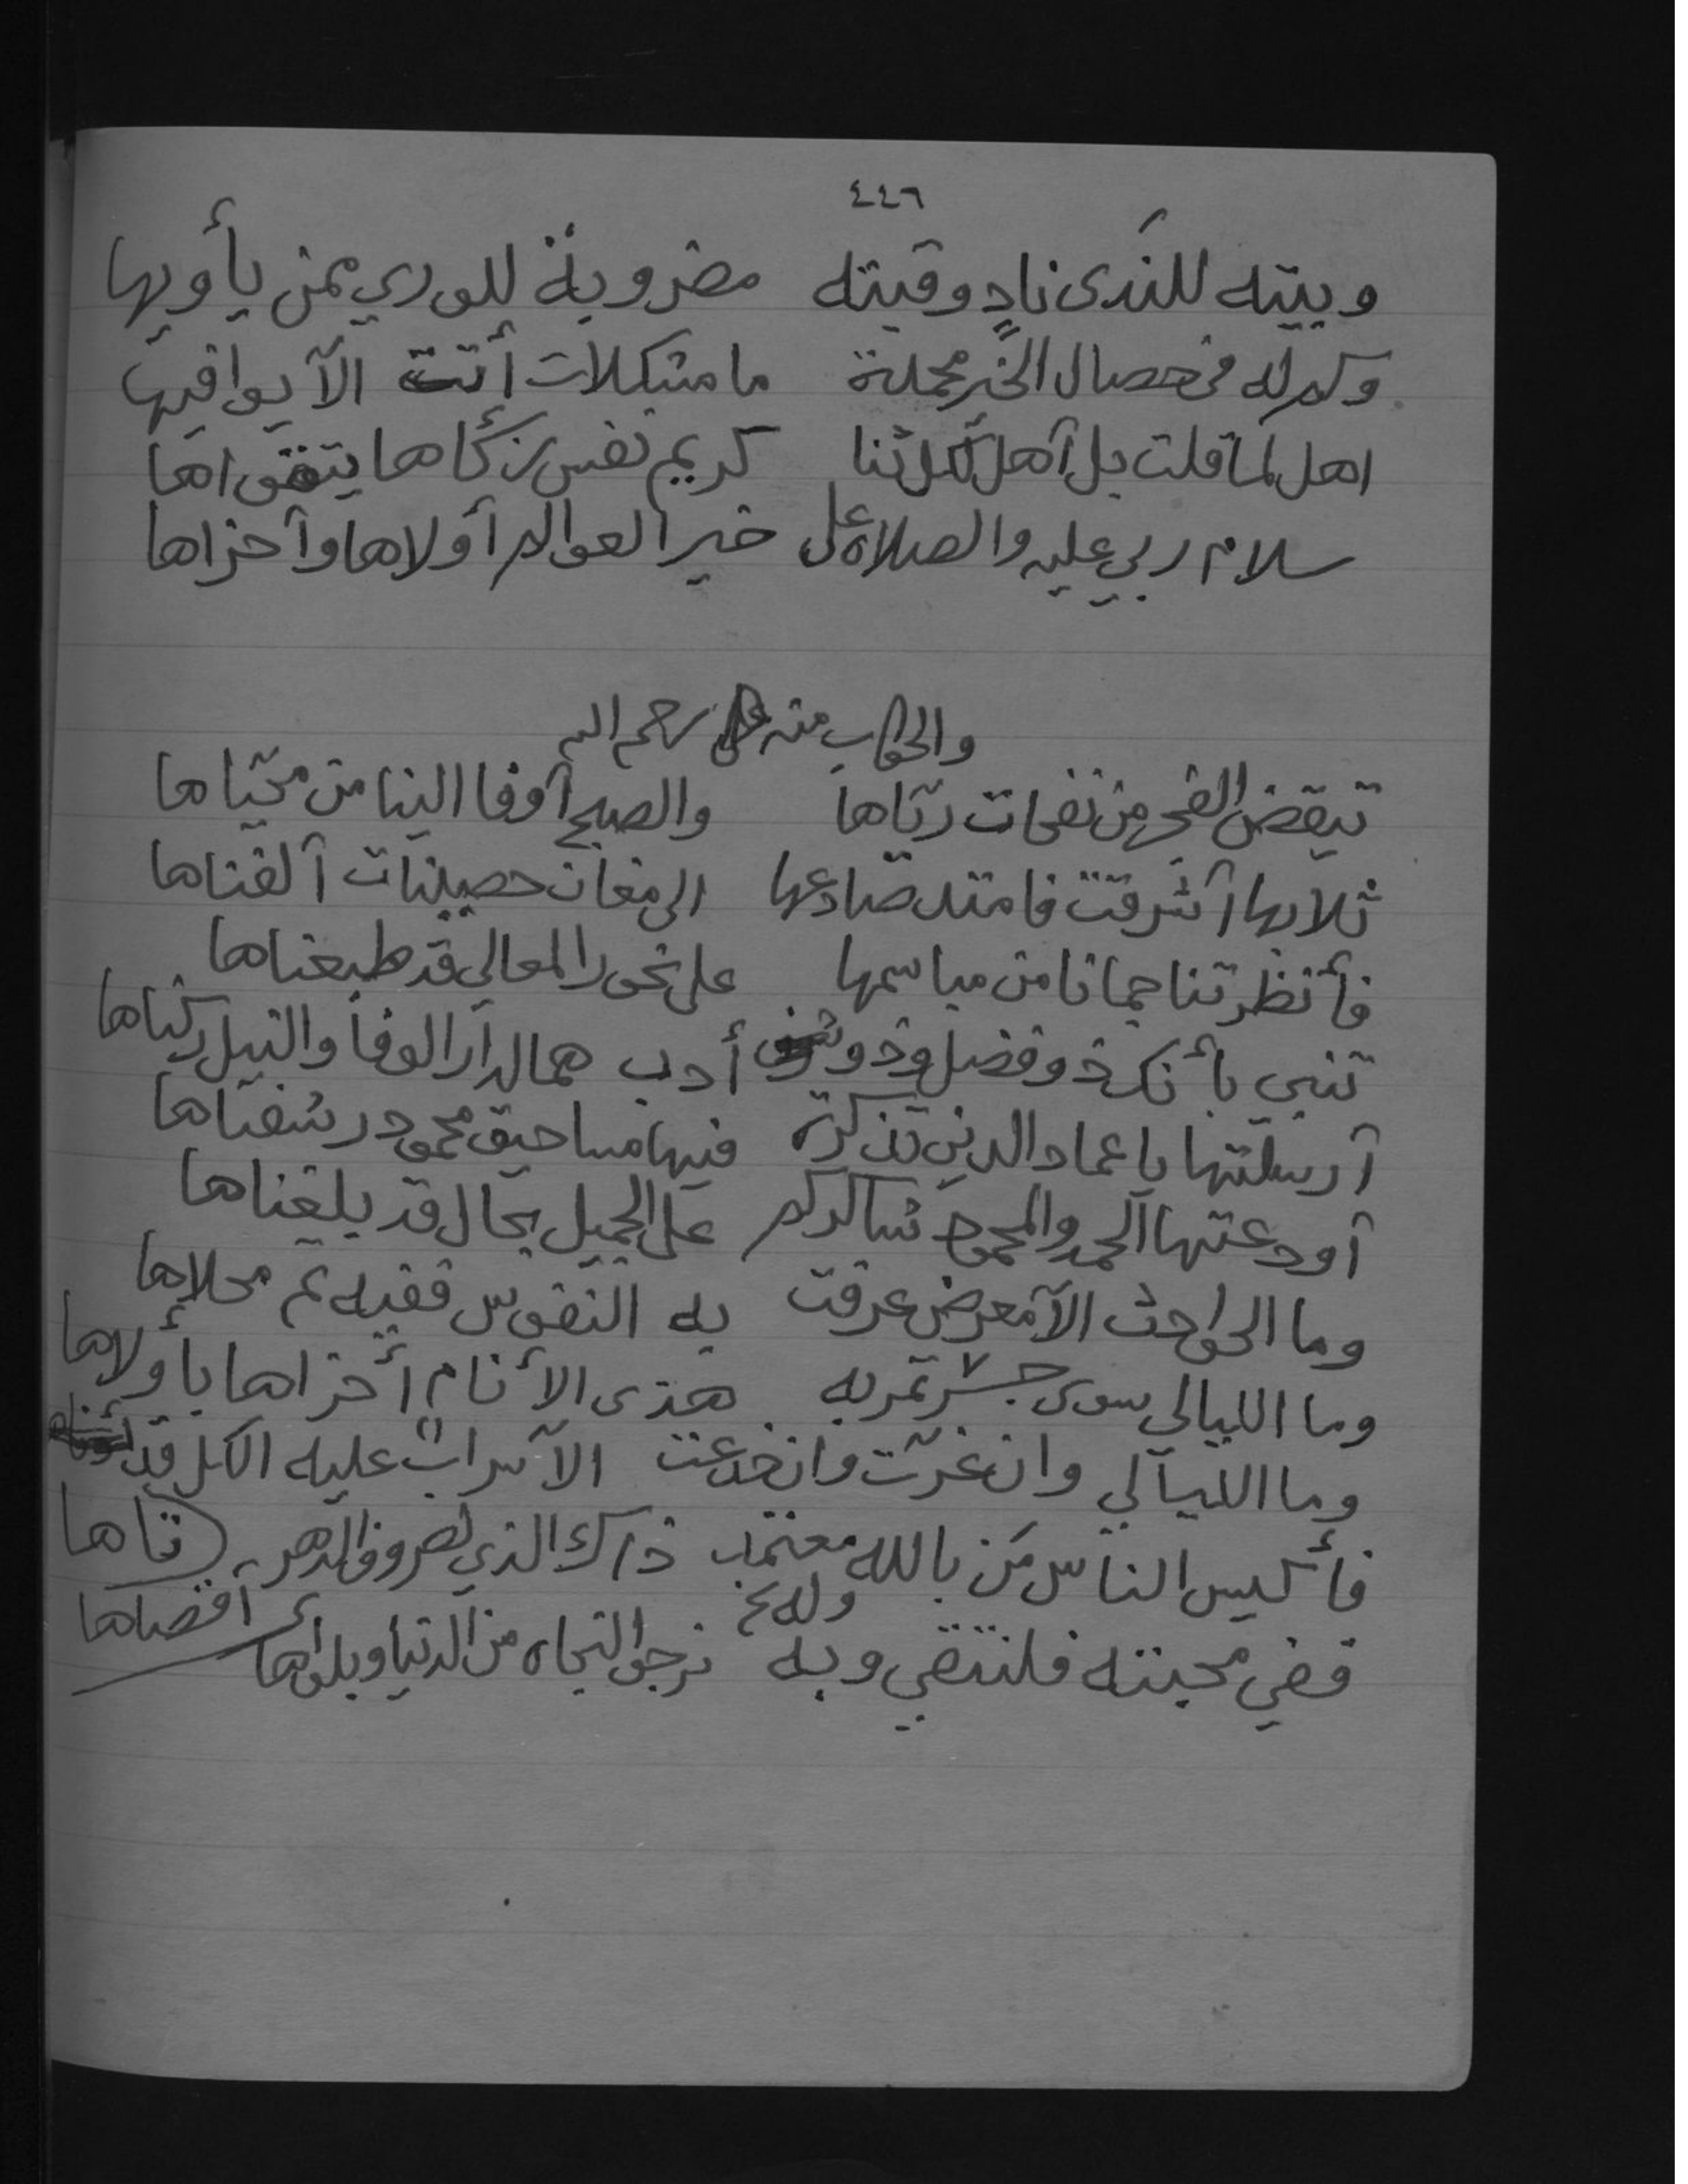 ٤٤٦
وبيته للندى نادٍ وقبته مضروبة للورى ممن يأويها
وكم له من خصال الخير مجملة ما مشكلات أتت الا يوافيها
اهل لما قلت بل أهل لكل ثنا كريم نفس زكاها بتقواها
سلام ربي عليه والصلاة على خير العوالم أولاها وأخراها
والجواب منه على رحمه الله
تيقض الفجر من نفحات ريّاها والصبح أوفا الينا من محيّاها
أشرقت فامتد الى مغان حصينات ألفناها
فأنظرتنا جمانا من مباسمها على نحور المعالي قد طبعناها
تنبي بأنك ذو فضل وذو أدب هما لدار الوفا والنيل ركناها
أرسلتها يا عماد الدين تذكرة فيها مساحيق محمود رشفناها
أودعتها الحمد والمحمود شاكركم على الجميل بحال قد بلغناها
وما الحوادث الا معرض عرفت به النفوس ففيه تم محلاها
وما الليالي سوى جسر تمر به هذى الأنام أخراها بأولاها
وما الليالي وان غرّت وان خدعت الا سراب عليه الكل قد تاها
فأكيس الناس من بالله معتمد ذاك الذي لصروف الدهر أقصاها
ففي محبته فلنتقي وبه نرجو النجاه من الدنيا وبلواها